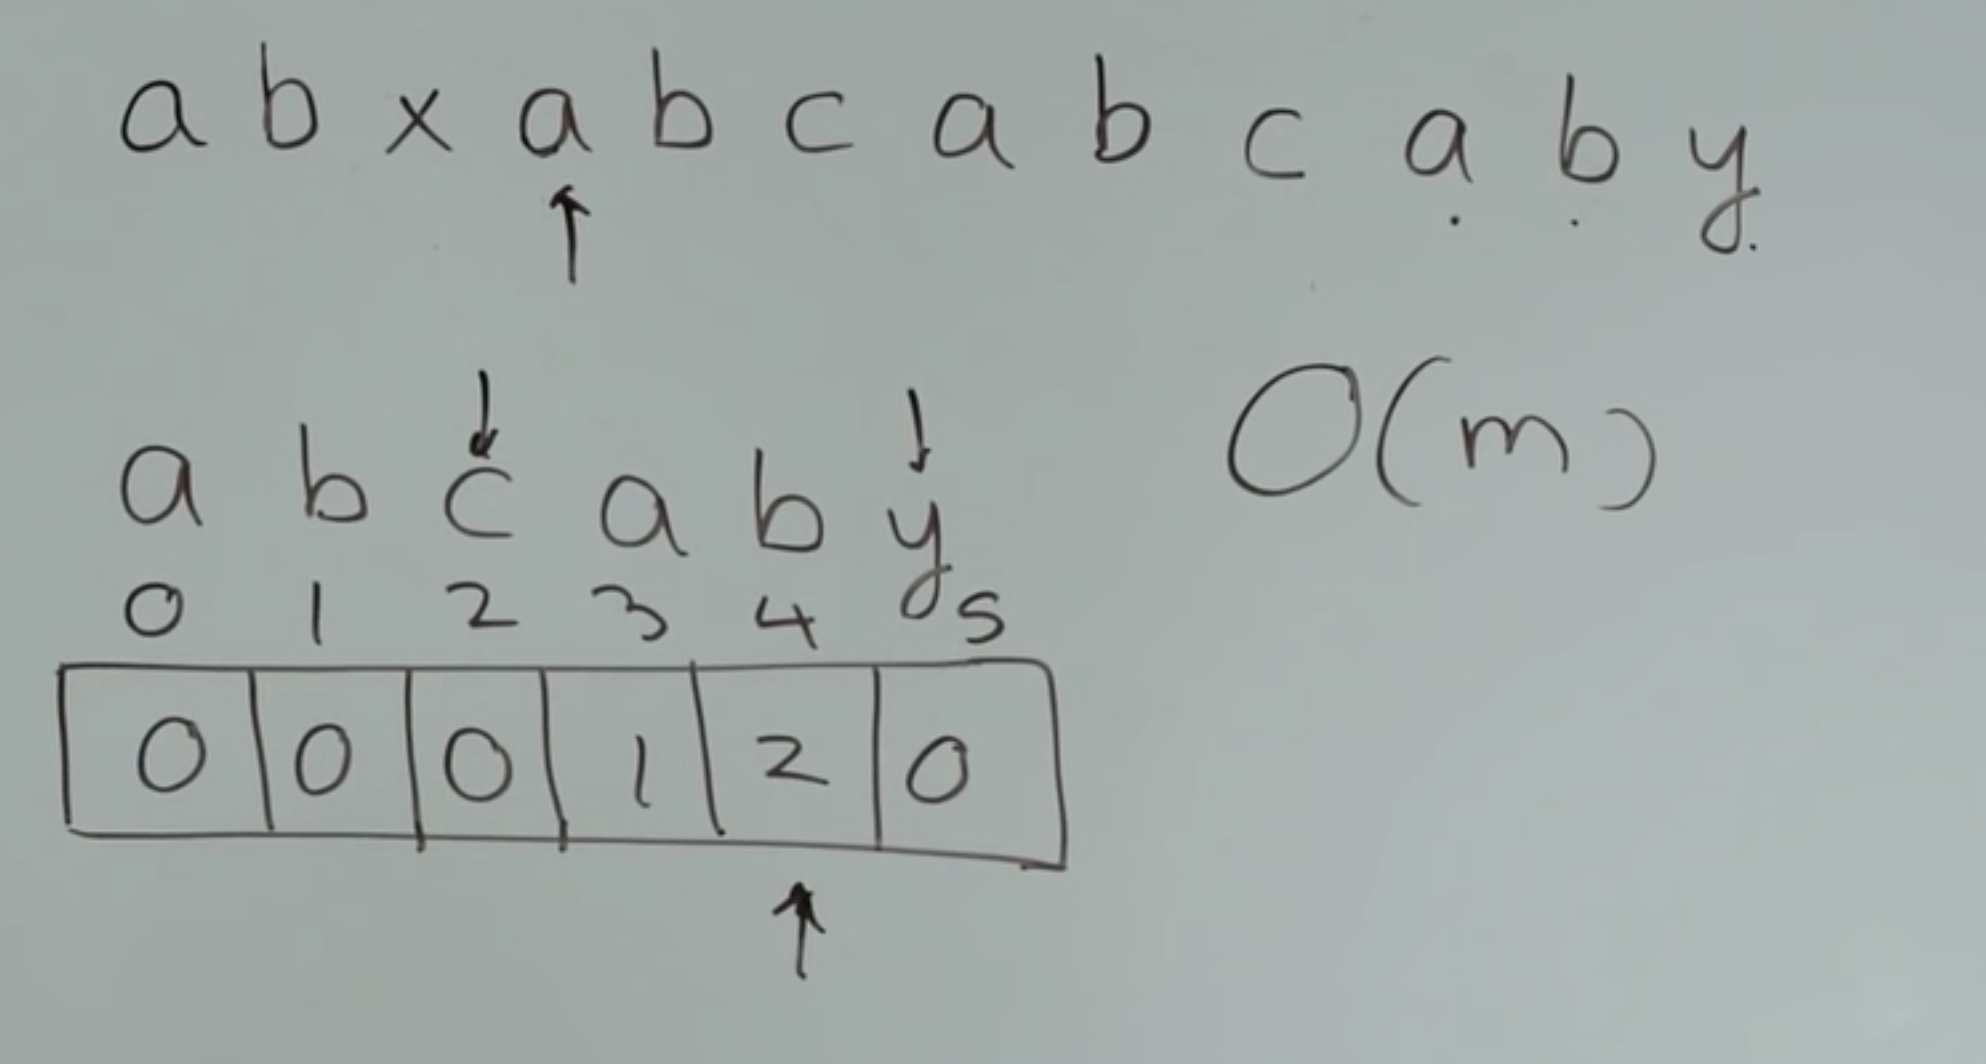 a b x a b c a b c a b y
O(m)
a b c a b y
0 1 2 3 4 5
0 0 0 1 2 0